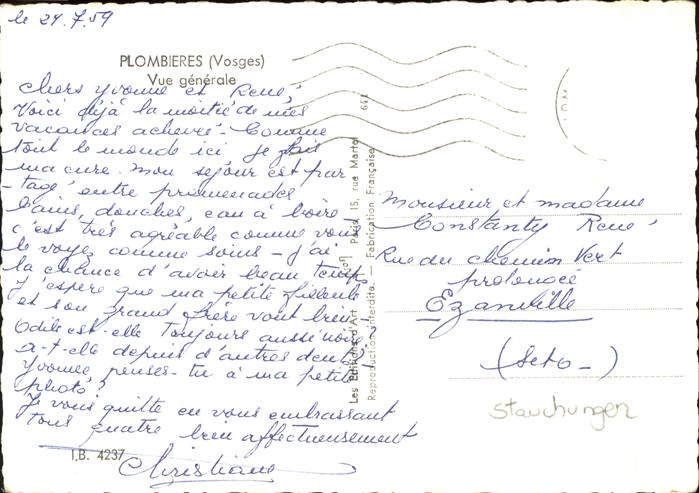 le 24.7.59
PLOMBIERES (Vosges)
Vue générale
Chers Yvonne et René,
Voici déjà la moitié de mes
vacances achevé - Comme
tout le monde ici je fais
ma cure. Mon séjour est par
-tagé entre promenades
bains, douches, eau à boire
c'est très agréable comme vous
le voyez comme soins - j'ai
la chance d'avoir beau temps
J'espère que ma petite filleule
et son grand frère vont bien
Odile est-elle toujours aussi
a-t-elle depuis d'autres dents ?
Yvonne penses-tu à ma petite
photo ?
Je vous quitte en vous embrassant
tous quatre bien affectueusement
Christiane
I.B. 4237
Les Editions d'Art Paris 15, rue Martel
Reproduction interdite. — Fabrication Française.
Monsieur et madame
Constanty René
Rue du chemin Vert
prolongée
Ezanville
(Seto-)
Stauchungen